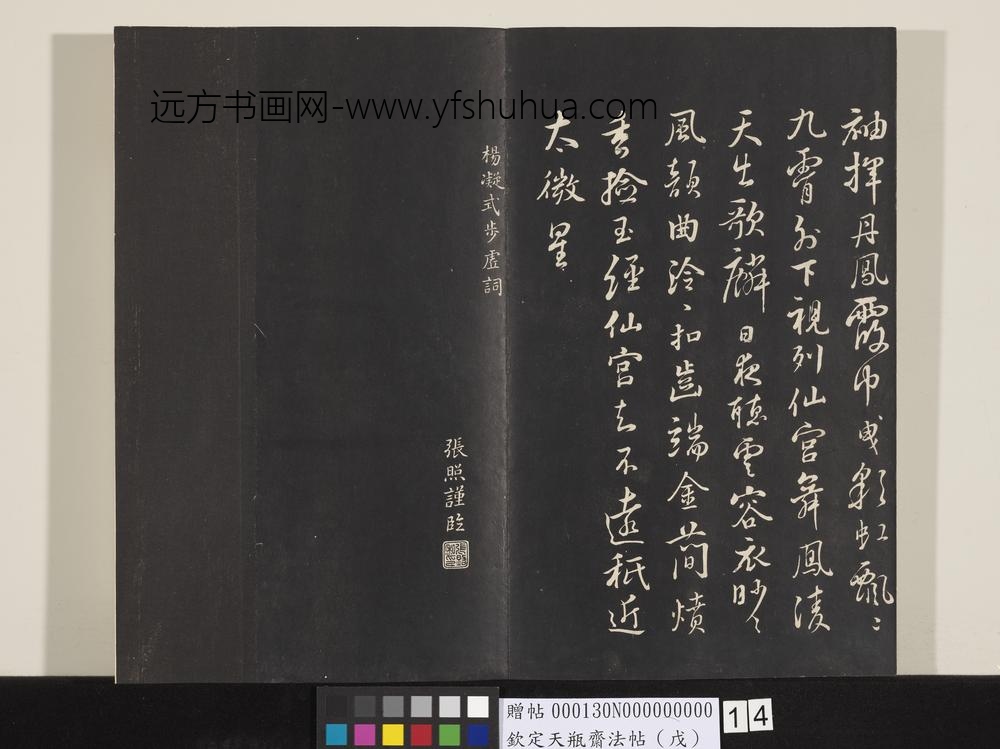 袖揮丹鳳霞巾曳彩虹飄〻
九霄外下視列仙宮舞鳳凌
天出歌麟日夜聽雲容衣眇〻
風韻曲泠〻扣齒端金簡焚
香撿玉經仙宮去不遠秖近
太微星
楊凝式步虛詞
張照謹臨
远方书画网-www.yfshuhua.com
贈帖 000130N000000000
欽定天瓶齋法帖（戊）
14